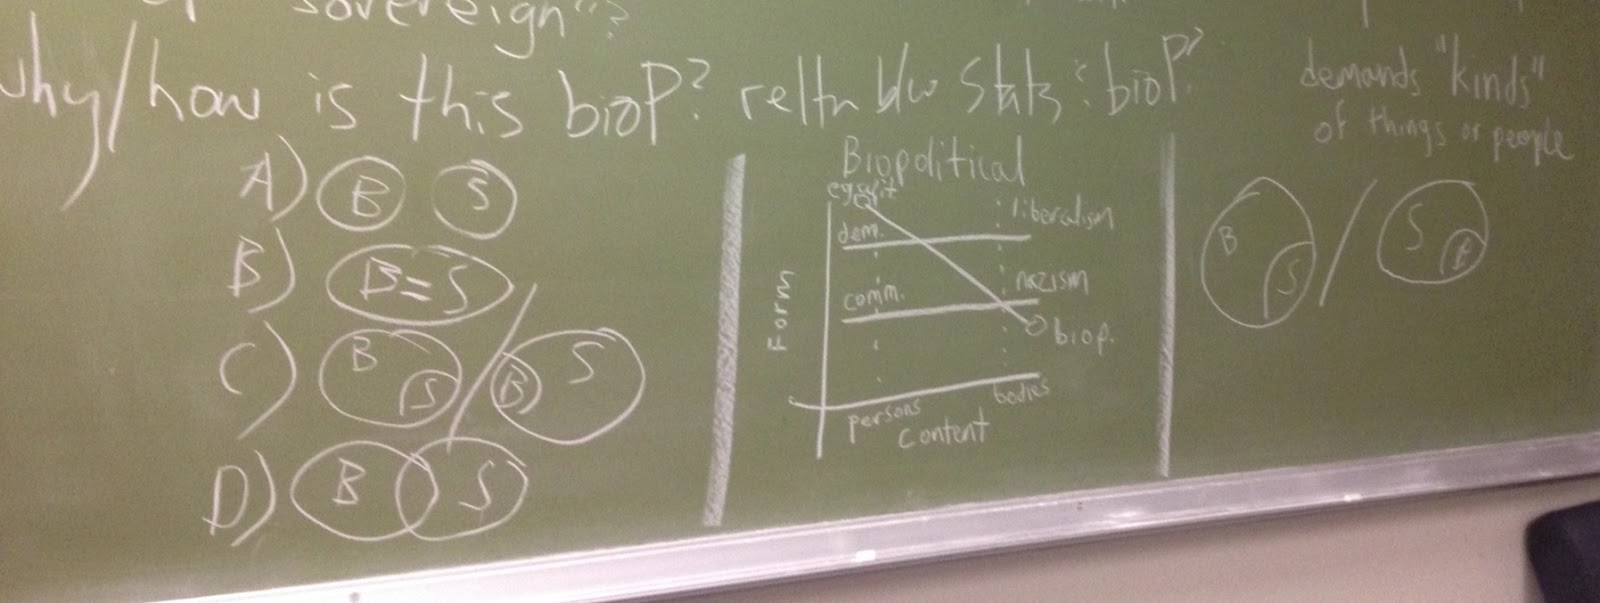 sovereign"?
why/how is this bioP? reltn b/w stats : bioP?
A) B S
B) B=S
C) B S / B S
D) B S
Biopolitical
egalit
dem.
liberalism
comm.
nazism
biop.
Form
persons
bodies
content
demands "kinds"
of things or people
B S / S B